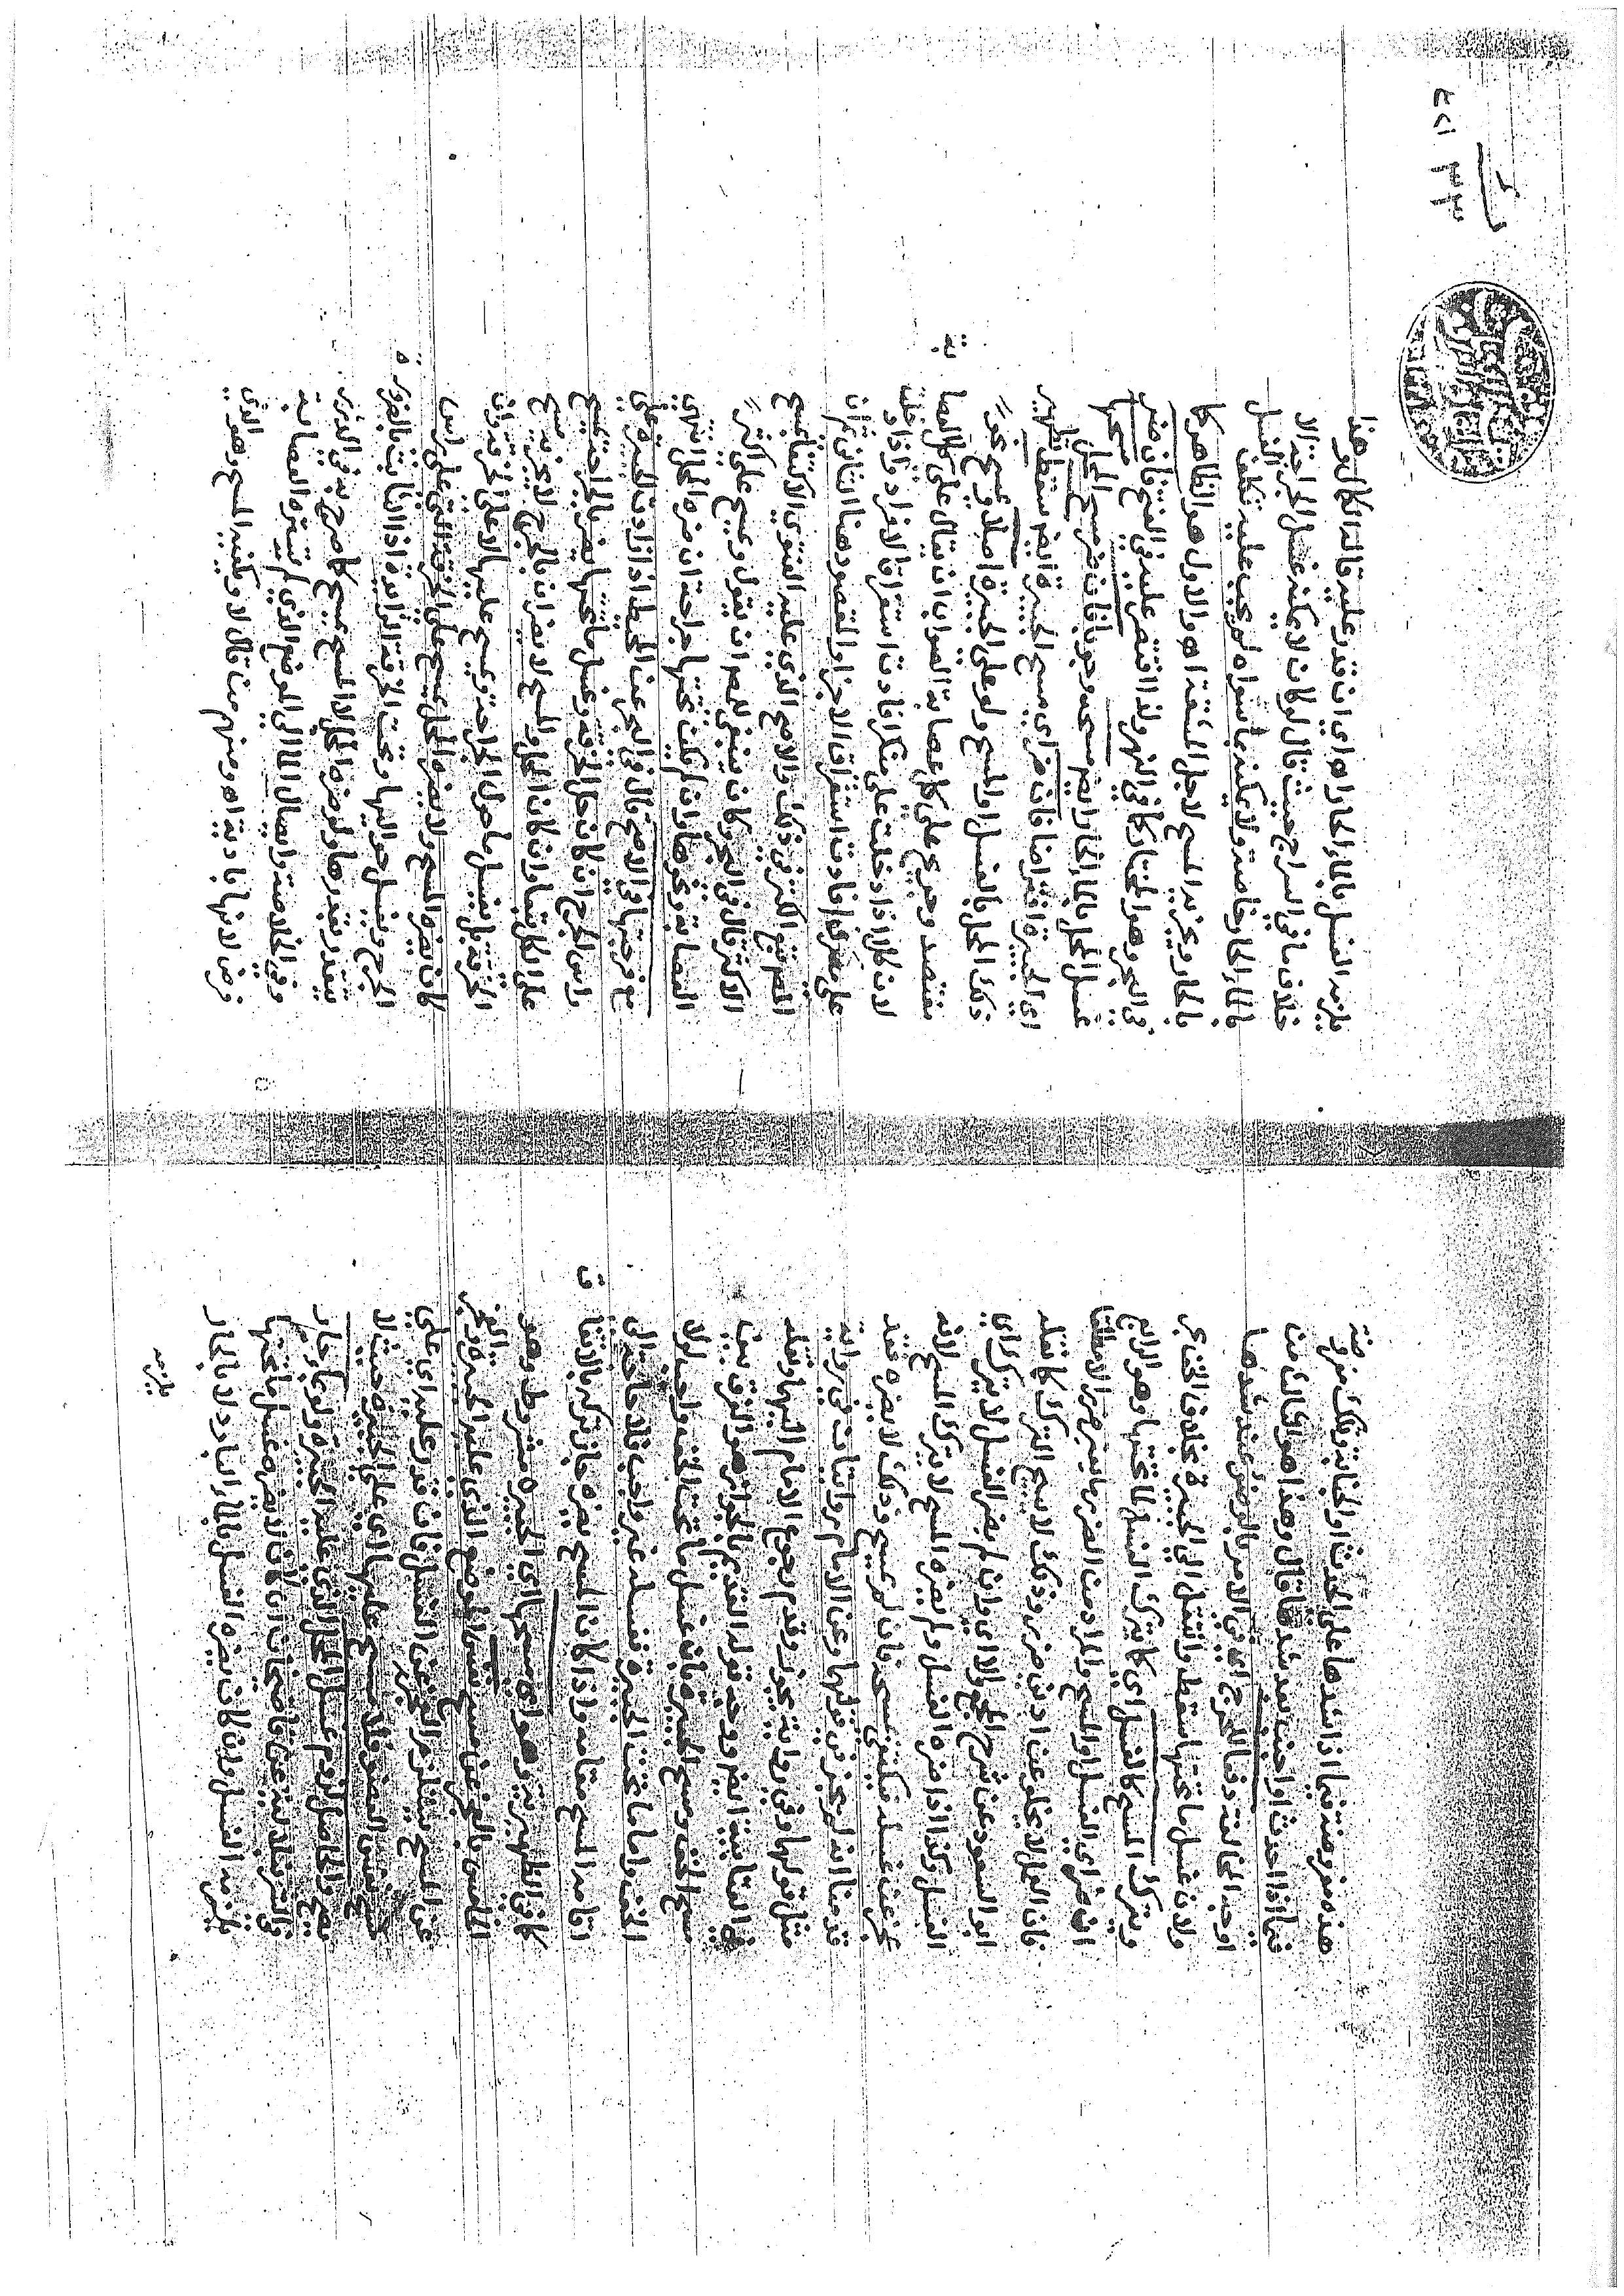 هذه مفروضة فيما اذا شدها على الحدث او الجنابة وتلك مفروضة
فيما اذا احدث او اجنب بعد شدها قال وهذا هو الثامن من
اوجه المخالفة دفعا للحرج اي في الامر بالوضوء عند شدها
ولان غسل ما تحتها سقط وانتقل الى الجبيرة بخلاف الخف
ويترك المسح كالغسل اي كما يترك الغسل لما تحتها وهو الرابع
ان ضر اي الغسل او المسح والمراد من الضرر المعتبر لا مطلقا
فان العمل لا يخلو عن ادنى ضرر وذلك لا يبيح الترك كما نقله
ابو السعود عن شرح المجمع والا اي وان لم يضر الغسل لا يترك اي
الغسل وكذا اذا ضره الغسل ولم يضره المسح لا يترك المسح لانه
عجز عن غسله فيكتفي بمسحه فان لم يمسح وذلك لا يضره فقد
قدمنا انه لم يجز في قولهما وعن الامام روايتان في رواية
مثل قولهما وفي رواية يجوز وقدم رجوع الامام اليهما ونقله
في العناية ايضا ووجه قوله القديم بالجواز هو الفرق بين
مسح الخف ومسح الجبيرة بان غسل ما تحت الخف واجب لولا
الخف واما ما تحت الجبيرة فغسله غير واجب فلا حاجة الى
اقامة المسح مقامه واذا كان المسح يضره جاز تركه بالاتفاق
كما في الظهيرية وهو اي مسحها اي الجبيرة مشروط وهو
الخامس بالعجز عن مسح نفس الموضع الذي عليه الجبيرة والعجز
عن المسح يستلزم العجز عن الغسل فان قدر عليه اي على
مسح نفس العضو فلا مسح عليها اي على الجبيرة حينئذ لا
يصح والحاصل لزوم غسل المحل الذي عليه الجبيرة ولو بماء حار
عن قاضيخان ان كان لا يضره غسل ما تحتها
يلزمه الغسل وان كان يضره الغسل بالماء البارد لا بالحار
يلزمه
يلزمه الغسل بالماء الحار اه اي ان قدر عليه قاله الكمال وهذا
خلاف ما في السراج حيث قال لو كان لا يمكنه غسل الجراحة الا
بالماء الحار خاصة ولا يمكنه بما سواه لم يجب عليه تكلف الغسل
بالحار ويجزيه المسح لاجل المشقة اه والاول هو الظاهر كما
في البحر وهو المختار كما في النهر ولذا اقتصر عليه في الفتح فان ضر
غسل المحل بالماء الحار ايضا مسحه وجوبا فان ضر مسح المحل مسحها
اي الجبيرة افتراضا فان ضر اي مسح الجبيرة ايضا سقط التطهير
ذلك المحل بالغسل او المسح ولو على الجبيرة اصلا ويمسح نحو
مفتصد وجريح على كل عصابة الصواب ان يقال على كل العصابة
لان كلا اذا دخلت على منكر افادت استغراق الافراد واذا دخلت
على معرف افادت استغراق الاجزاء والمقصود هنا الثاني غير ان
المصنف تبع الكنز في ذلك والاصح الذي عليه الفتوى الاكتفاء بمسح
الاكثر قال في البحر وكان ينبغي للمصنف ان يقول ويمسح على اكثر
العصابة ونحوها وان لم يكن تحتها جراحة ان ضره الحل انتهى
مع فرجتها في الاصح قال في البحر عن المحيط اذا زادت الجبيرة على
راس الجرح ان كان حل الخرقة وغسل ما تحتها يضر بالجراحة يمسح
على الكل تبعا وان كان الحل والمسح لا يضر بالجرح لا يجزيه مسح
الخرقة بل يغسل ما حول الجراحة ويمسح عليها لا على الخرقة وان
كان يضره المسح ولا يضره الحل يمسح على الخرقة التي على راس
الجرح ويغسل حواليها وتحت الخرقة الزائدة اذ الثابت بالضرورة
يتقدر بقدرها ولو ضره الحل لا المسح يمسح كما صرح به في الدرر
وفي الخلاصة وايصال الماء الى الموضع الذي لم تستره العصابة
فرض لانها بادية اه ومنهم من قال لا ويكفيه المسح وهو الذي